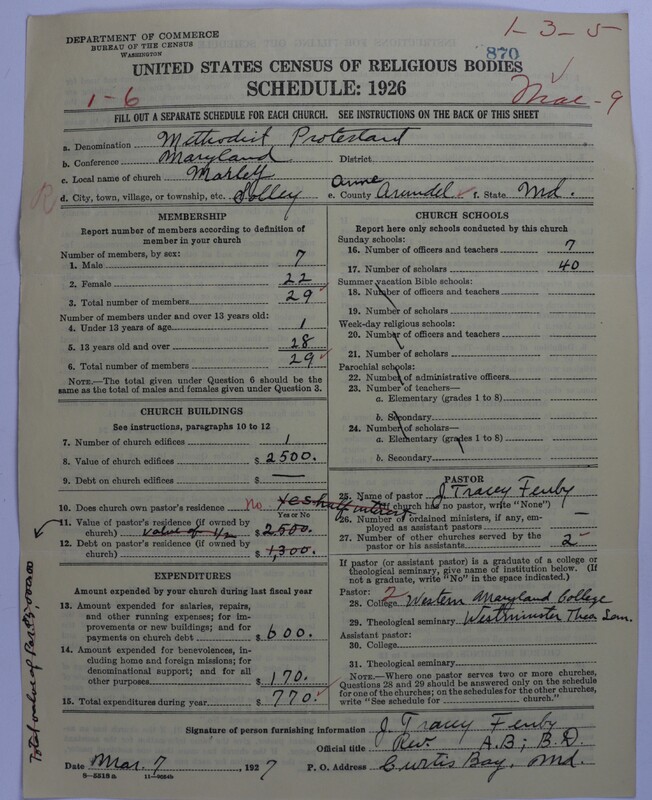 DEPARTMENT OF COMMERCE
BUREAU OF THE CENSUS
WASHINGTON
1-3-5
870
UNITED STATES CENSUS OF RELIGIOUS BODIES
SCHEDULE: 1926
1-6
Mar-9
FILL OUT A SEPARATE SCHEDULE FOR EACH CHURCH. SEE INSTRUCTIONS ON THE BACK OF THIS SHEET
a. Denomination Methodist Protestant
b. Conference Maryland District
c. Local name of church Marley
d. City, town, village, or township, etc. Solley e. County Anne Arundel f. State Md.
R
MEMBERSHIP
Report number of members according to definition of
member in your church
Number of members, by sex:
1. Male 7
2. Female 22
3. Total number of members 29
Number of members under and over 13 years old:
4. Under 13 years of age 1
5. 13 years old and over 28
6. Total number of members 29
NOTE.—The total given under Question 6 should be
same as the total of males and females given under Question 3.
CHURCH BUILDINGS
See instructions, paragraphs 10 to 12
7. Number of church edifices 1
8. Value of church edifices $ 2500.
9. Debt on church edifices $ —
10. Does church own pastor's residence no Yes half interest
Yes or No
11. Value of pastor's residence (if owned by
church) value of 1/2 $ 2,500.
12. Debt on pastor's residence (if owned by
church) $ 1,300.
EXPENDITURES
Amount expended by your church during last fiscal year
13. Amount expended for salaries, repairs,
and other running expenses; for im-
provements or new buildings; and for
payments on church debt $ 600.
14. Amount expended for benevolences, in-
cluding home and foreign missions; for
denominational support; and for all
other purposes $ 170.
15. Total expenditures during year $ 770.
CHURCH SCHOOLS
Report here only schools conducted by this church
Sunday schools:
16. Number of officers and teachers 7
17. Number of scholars 40
Summer vacation Bible schools:
18. Number of officers and teachers
19. Number of scholars
Week-day religious schools:
20. Number of officers and teachers
21. Number of scholars
Parochial schools:
22. Number of administrative officers
23. Number of teachers—
a. Elementary (grades 1 to 8)
b. Secondary
24. Number of scholars—
a. Elementary (grades 1 to 8)
b. Secondary
PASTOR
25. Name of pastor J. Tracey Fenby
(If church has no pastor, write "None")
26. Number of ordained ministers, if any, em-
ployed as assistant pastors —
27. Number of other churches served by the
pastor or his assistants 2
If pastor (or assistant pastor) is a graduate of a college or
theological seminary, give name of institution below. (If
not a graduate, write "No" in the space indicated.)
Pastor: 2
28. College Western Maryland College
29. Theological seminary Westminster Theo Sem.
Assistant pastor:
30. College
31. Theological seminary
NOTE.—Where one pastor serves two or more churches,
Questions 28 and 29 should be answered only on the schedule
for one of the churches; on the schedules for the other churches,
write "See schedule for church."
Total value of
Signature of person furnishing information J. Tracey Fenby
Official title Rev. A.B; B.D.
Date Mar. 7, 1927 P. O. Address Curtis Bay, Md.